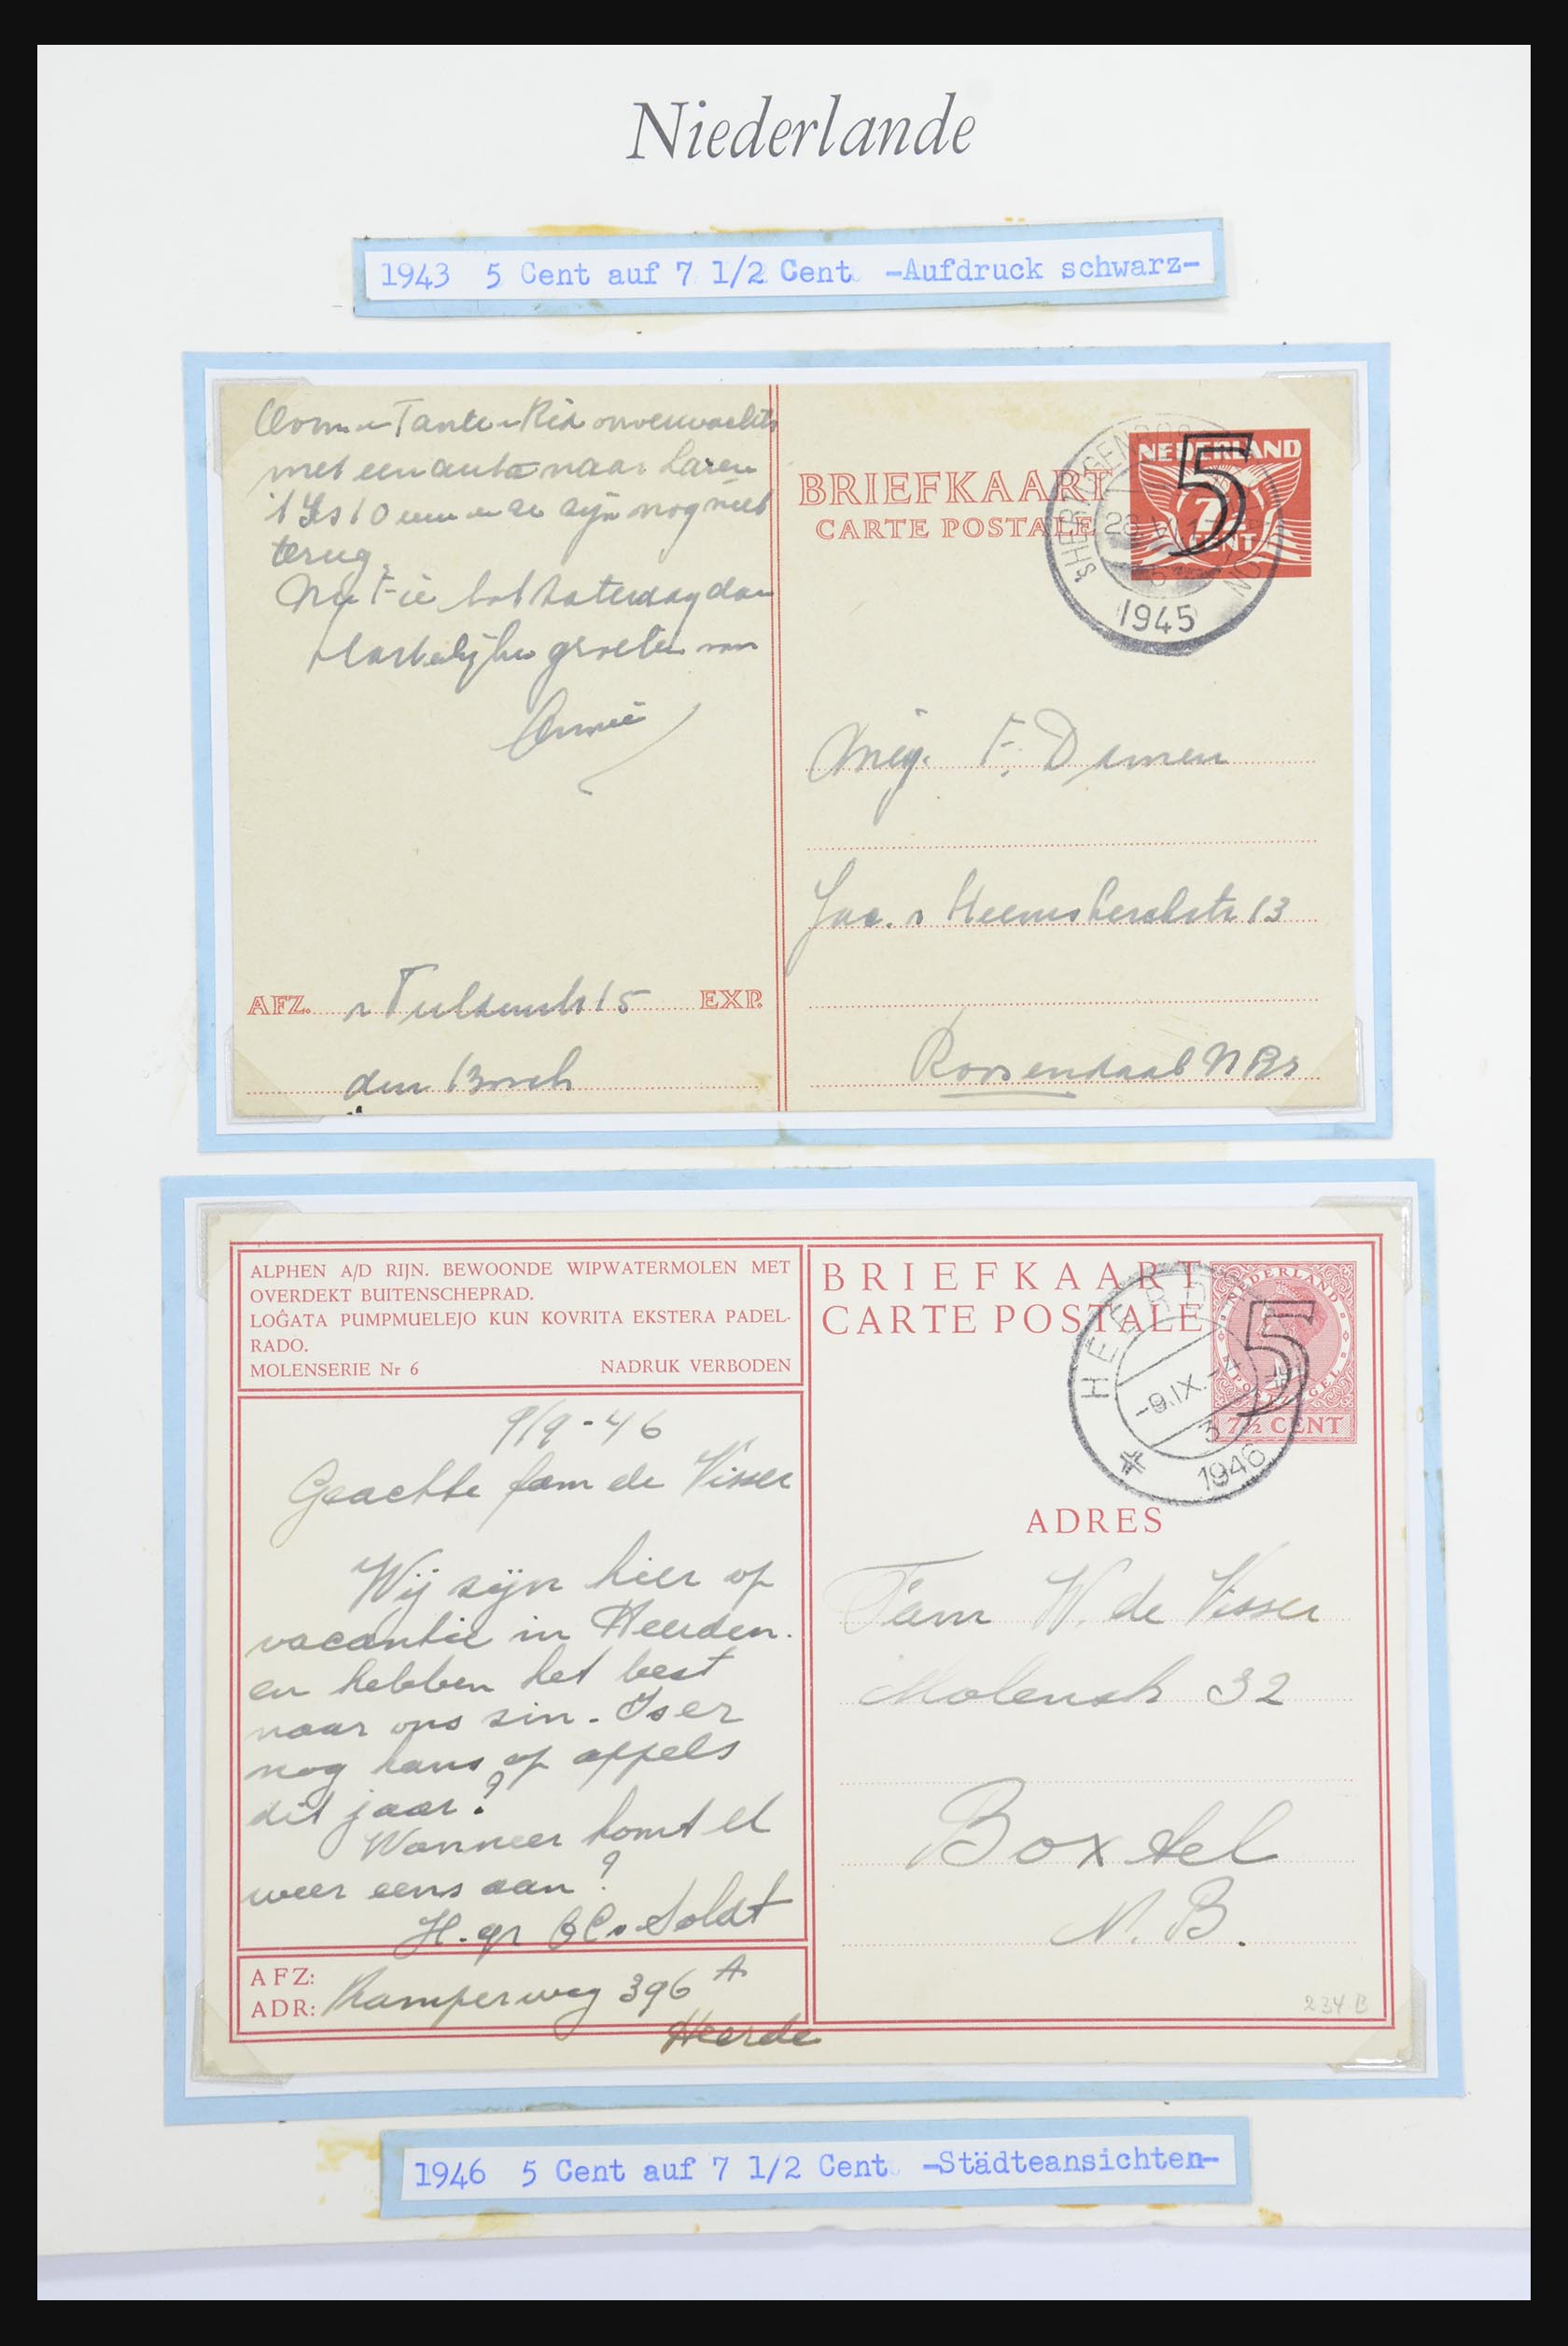 Niederlande
1943 5 Cent auf 7 1/2 Cent -Aufdruck schwarz-
Tante
met een auto naar
zijn nog niet
terug.
tot Zaterdag dan
Hartelijke groeten van
Annie
AFZ. 15 EXP.
den Bosch
BRIEFKAART
CARTE POSTALE
NEDERLAND
7½
CENT
5
'S-HERTOGENBOSCH
1945
Mej. F. Damen
Jac. v Heemskerckstr 13
Roosendaal N Br
ALPHEN A/D RIJN. BEWOONDE WIPWATERMOLEN MET
OVERDEKT BUITENSCHEPRAD.
LOĜATA PUMPMUELEJO KUN KOVRITA EKSTERA PADEL-
RADO.
MOLENSERIE Nr 6 NADRUK VERBODEN
9/9-46
Geachte fam de Visser
Wij zijn hier op
vacantie in Heerden.
en hebben het best
naar ons zin. Is er
nog kans op appels
dit jaar?
Wanneer komt U
weer eens aan?
H. gr Soldt
AFZ:
ADR: Kamperweg 396 A
Heerde
BRIEFKAART
CARTE POSTALE
NEDERLAND
5
7½ CENT
HEERDE
-9.IX.-4
3
1946
ADRES
Fam W. de Visser
Molenstr 32
Boxtel
N.B.
234 B
1946 5 Cent auf 7 1/2 Cent -Städteansichten-